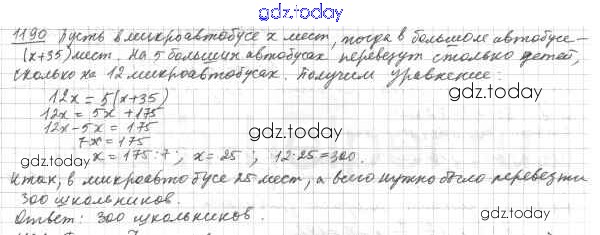 gdz.today
1190 Пусть в микроавтобусе x мест, тогда в большом автобусе –
(x+35) мест. На 5 больших автобусах перевезут столько детей,
сколько на 12 микроавтобусах. Получим уравнение:
12x = 5(x+35)
gdz.today
12x = 5x + 175
12x - 5x = 175
gdz.today
7x = 175
gdz.today
x = 175:7; x = 25; 12·25 = 300.
Итак, в микроавтобусе 25 мест, а всего нужно было перевезти
300 школьников.
gdz.today
Ответ: 300 школьников.
gdz.today